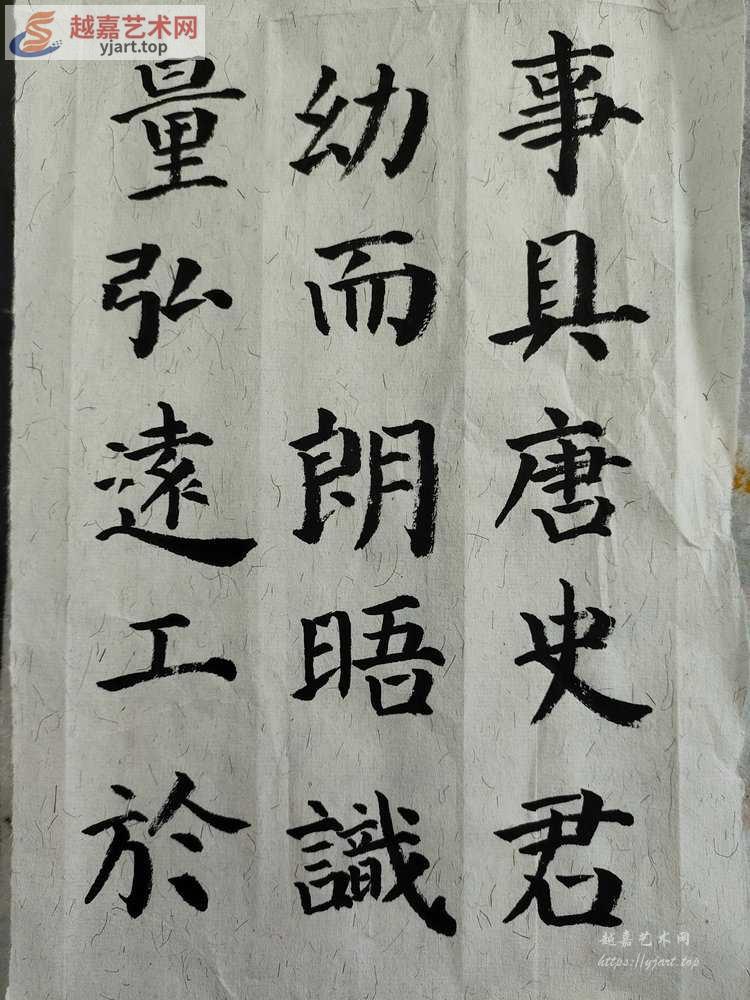 越嘉艺术网
yjart.top
事具唐史君
幼而朗晤識
量弘遠工於
越嘉艺术网
https://yjart.top